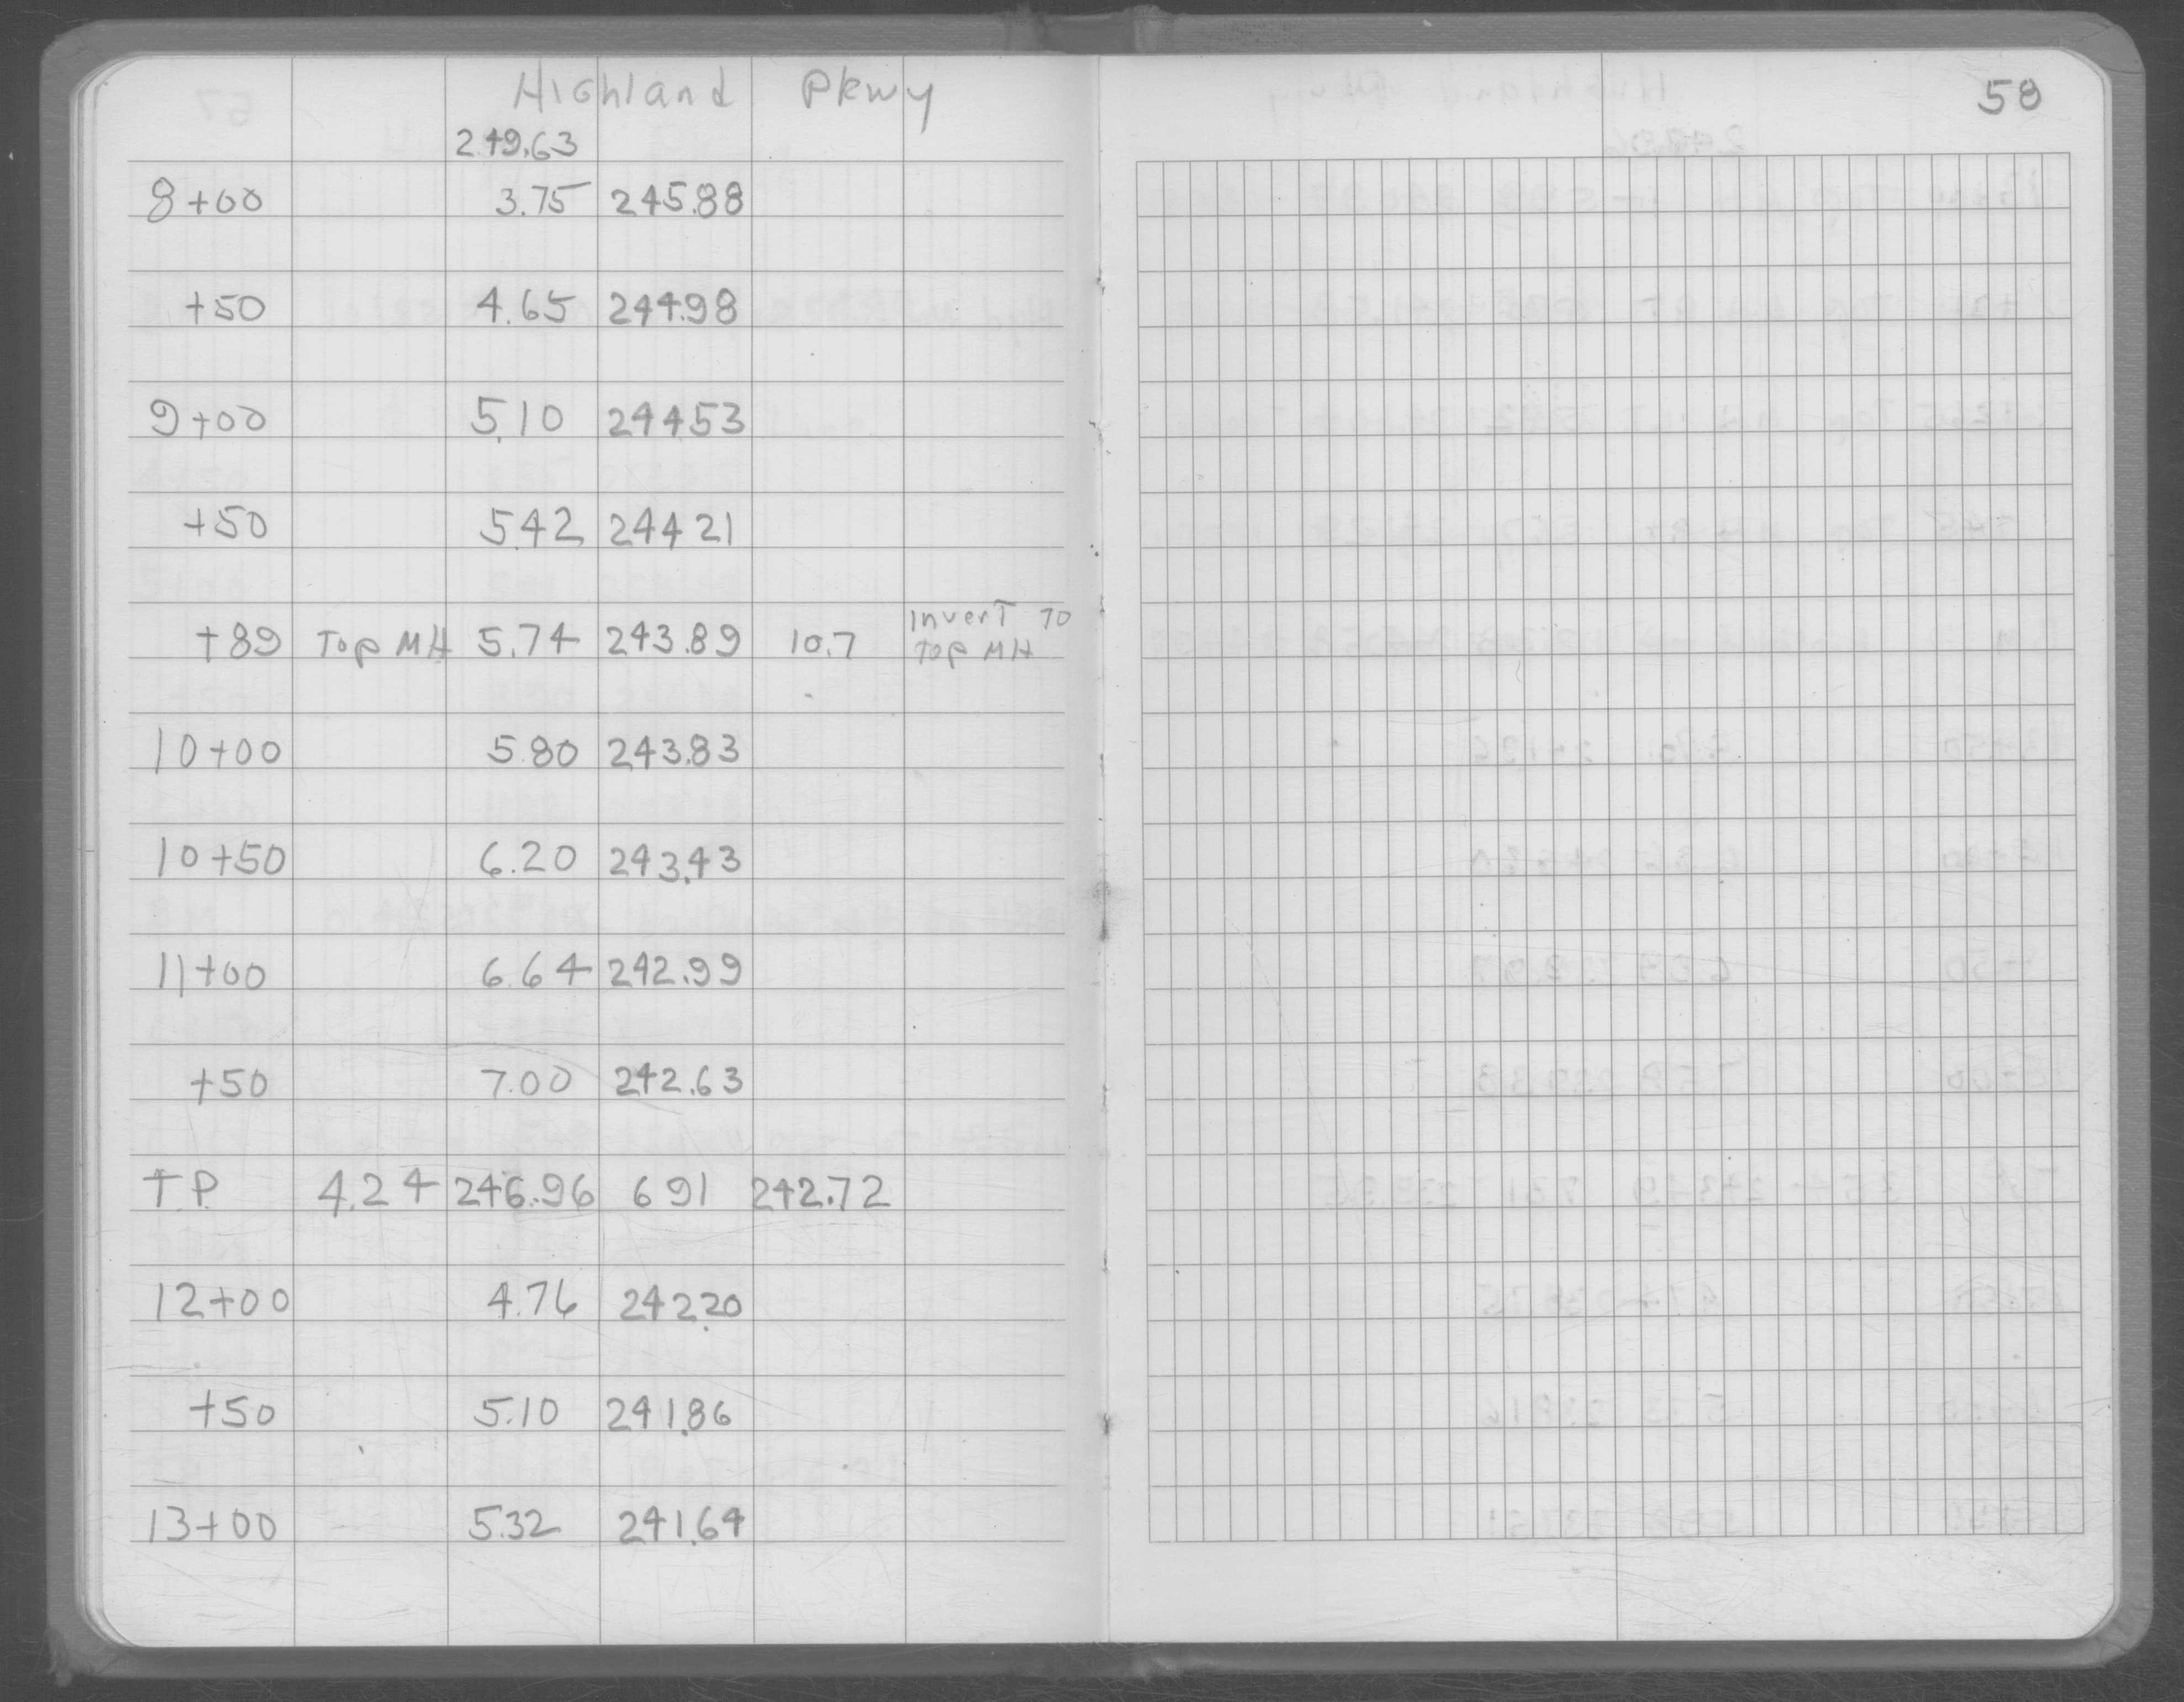 Highland Pkwy
58
249.63
8+00 3.75 245.88
+50 4.65 244.98
9+00 5.10 244.53
+50 5.42 244 21
+89 Top MH 5.74 243.89 10.7 Invert To Top MH
10+00 5.80 243.83
10+50 6.20 243.43
11+00 6.64 242.99
+50 7.00 242.63
T.P. 4.24 246.96 6 91 242.72
12+00 4.76 242.20
+50 5.10 241.86
13+00 5.32 241.64